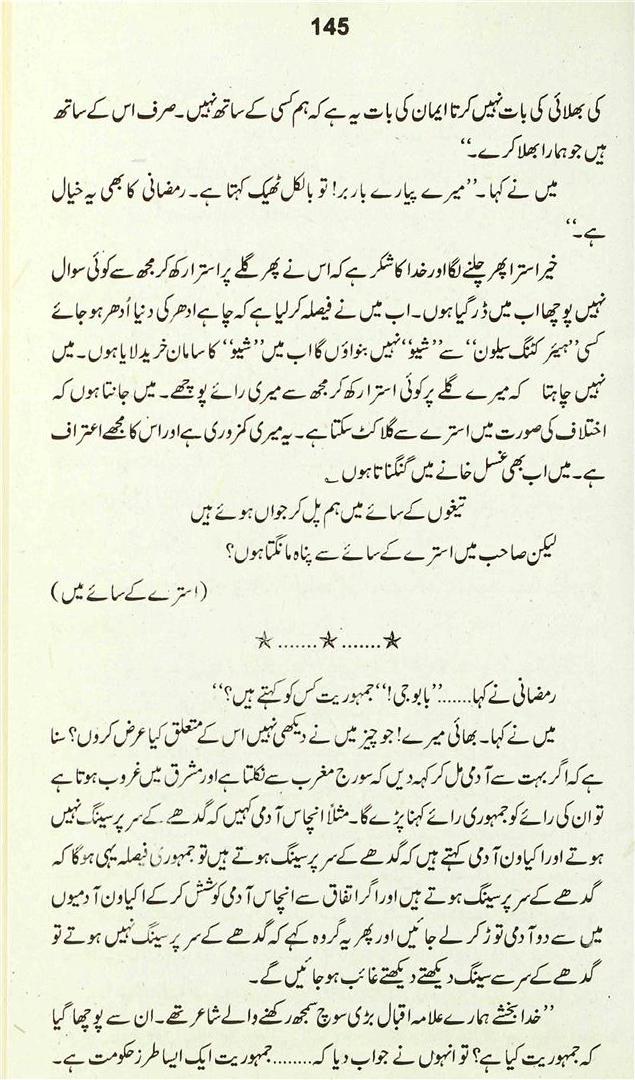 145
کی بھلائی کی بات نہیں کرتا ایمان کی بات یہ ہے کہ ہم کسی کے ساتھ نہیں۔ صرف اس کے ساتھ
ہیں جو ہمارا بھلا کرے۔“
میں نے کہا۔ ”میرے پیارے باربر! تو بالکل ٹھیک کہتا ہے۔ رمضانی کا بھی یہ خیال
ہے۔“
خیر استرا پھر چلنے لگا اور خدا کا شکر ہے کہ اس نے پھر گلے پر استرا رکھ کر مجھ سے کوئی سوال
نہیں پوچھا اب میں ڈر گیا ہوں۔ اب میں نے فیصلہ کر لیا ہے کہ چاہے ادھر کی دنیا اُدھر ہو جائے
کسی ”ہیئر کٹنگ سیلون“ سے ”شیو“ نہیں بنواؤں گا اب میں ”شیو“ کا سامان خرید لایا ہوں۔ میں
نہیں چاہتا کہ میرے گلے پر کوئی استرا رکھ کر مجھ سے میری رائے پوچھے۔ میں جانتا ہوں کہ
اختلاف کی صورت میں استرے سے گلا کٹ سکتا ہے۔ یہ میری کمزوری ہے اور اس کا مجھے اعتراف
ہے۔ میں اب بھی غسل خانے میں گنگناتا ہوں ؎
تیغوں کے سائے میں ہم پل کر جواں ہوئے ہیں
لیکن صاحب میں استرے کے سائے سے پناہ مانگتا ہوں؟
(استرے کے سائے میں)
☆.......☆.......☆
رمضانی نے کہا.......”بابو جی!“ جمہوریت کس کو کہتے ہیں؟“
میں نے کہا۔ بھائی میرے! جو چیز میں نے دیکھی نہیں اس کے متعلق کیا عرض کروں؟ سنا
ہے کہ اگر بہت سے آدمی مل کر کہہ دیں کہ سورج مغرب سے نکلتا ہے اور مشرق میں غروب ہوتا ہے
تو ان کی رائے کو جمہوری رائے کہنا پڑے گا۔ مثلاً انچاس آدمی کہیں کہ گدھے کے سر پر سینگ نہیں
ہوتے اور اکیاون آدمی کہتے ہیں کہ گدھے کے سر پر سینگ ہوتے ہیں تو جمہوری فیصلہ یہی ہو گا کہ
گدھے کے سر پر سینگ ہوتے ہیں اور اگر اتفاق سے انچاس آدمی کوشش کر کے اکیاون آدمیوں
میں سے دو آدمی توڑ کر لے جائیں اور پھر یہ گروہ کہے کہ گدھے کے سر پر سینگ نہیں ہوتے تو
گدھے کے سر سے سینگ دیکھتے دیکھتے غائب ہو جائیں گے۔
”خدا بخشے ہمارے علامہ اقبال بڑی سوچ سمجھ رکھنے والے شاعر تھے۔ ان سے پوچھا گیا
کہ جمہوریت کیا ہے؟ تو انہوں نے جواب دیا کہ........جمہوریت ایک ایسا طرز حکومت ہے۔